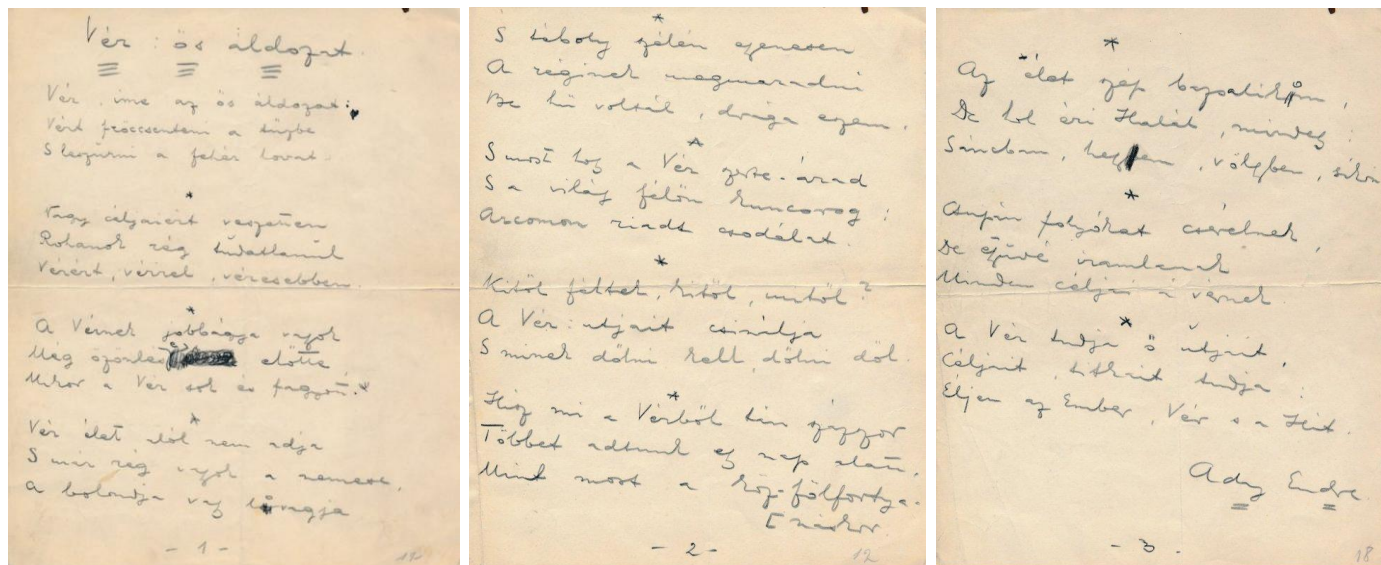 Vér: ős áldozat.
Vér, ime az ős áldozat:
Vért fröccsenteni a tűzbe
S leszúrni a fehér lovat.
*
Nagy céljaiért veszetten
Rohanok rég tudatlanúl
Vérért, vérrel, véresebben.
*
A Vérnek jobbágya vagyok
Még özönles előtte,
Mikor a Vér sok és fagyott.
*
Vér élet alól nem adja
S már rég vagyok a nemese,
A bolondja vagy lovagja
- 1 -
*
S téboly szélén egyenesen
A réginek megmaradni
Be hű voltál, drága eszem.
*
S most hogy a Vér szerte-árad
S a világ félőn kuncorog:
Arcomon riadt csodálat.
*
Kitől féltek, kitől, mitől?
A Vér utjait csinálja
S minek dőlni kell, dőlni dől.
*
Hisz mi a Vérből tán százszor
Többet adtunk egy nap alatt,
Mint most a köz-fölfortya-
[náskor.
- 2 -
12
*
Az élet szép bazsalikom,
De hol éri Halál, mindegy:
Sáncban, hegyen, völgyben, síkon
*
Csupán folyókat cserélnek,
De együvé iramlanak
Minden céljai a vérnek.
*
A Vér tudja ő útjait,
Céljait, titkait tudja:
Éljen az Ember, Vér s a Hit.
Ady Endre.
- 3 -
18